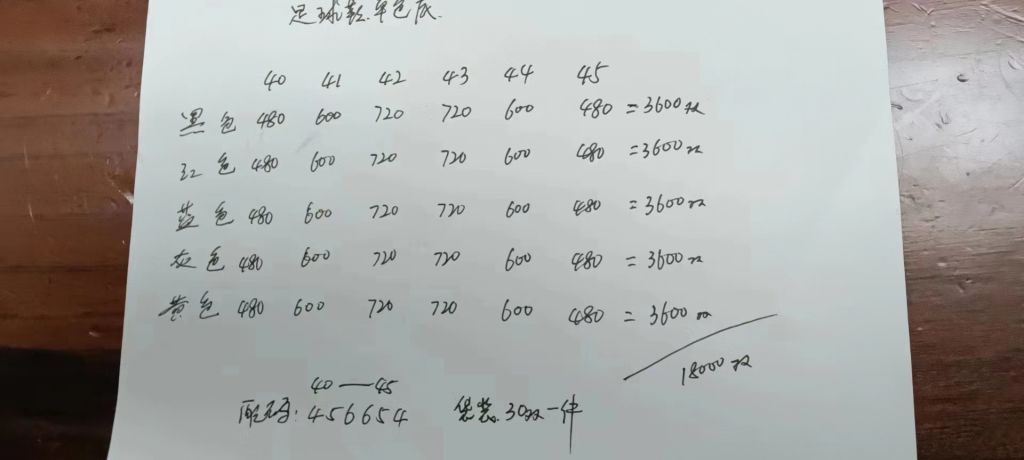 足球款.单色底.
40 41 42 43 44 45
黑色 480 600 720 720 600 480 =3600双
红色 480 600 720 720 600 480 =3600双
蓝色 480 600 720 720 600 480 =3600双
灰色 480 600 720 720 600 480 =3600双
黄色 480 600 720 720 600 480 =3600双
18000双
40——45
配码:456654 袋装.30双一件